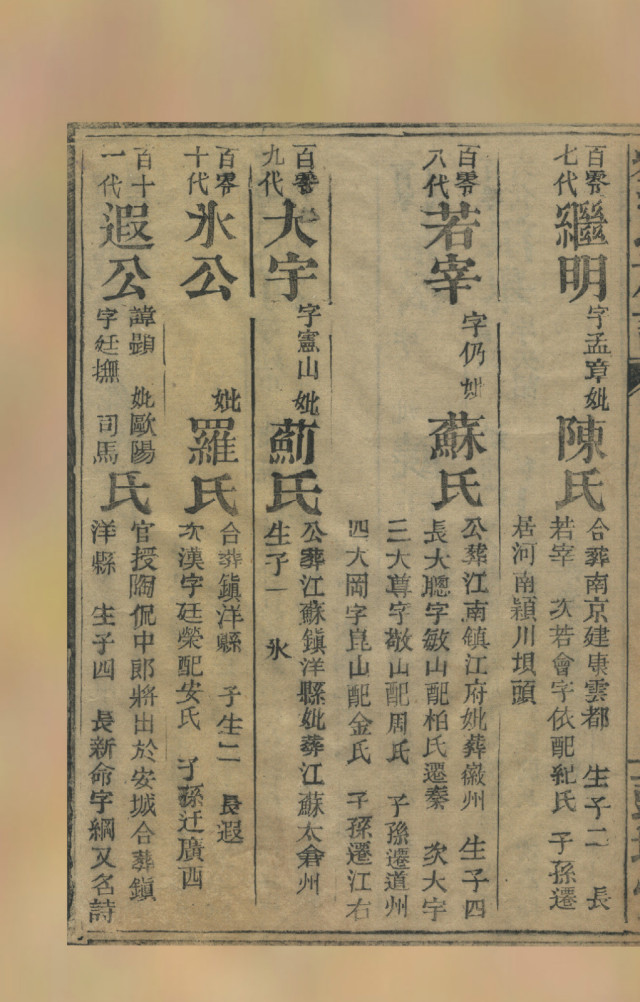 百零
七代
繼明
字孟章妣
陳氏
合葬南京建東雲都 生子二 長
若宰 次若會字依配紀氏 子孫遷
居河南潁川垻頭
百零
八代
若宰
字仍 妣
蘇氏
公葬江南鎮江府妣葬徽州 生子四
長大聰字敏山配柏氏遷秦 次大宇
三大尊字敬山配周氏 子孫遷道州
四大岡字崑山配金氏 子孫遷江右
百零
九代
大宇
字憲山 妣
薊氏
公葬江蘇鎮洋縣妣葬江蘇太倉州
生子一 氷
百零
十代
氷公
妣
羅氏
合葬鎮洋縣 子生二 長遐
次漢字廷榮配安氏 子孫迁廣西
百十
一代
遐公
諱顕 妣歐陽
字廷撫 司馬
氏
官授陶侃中郎將出於安城合葬鎮
洋縣 生子四 長新命字綱又名詩